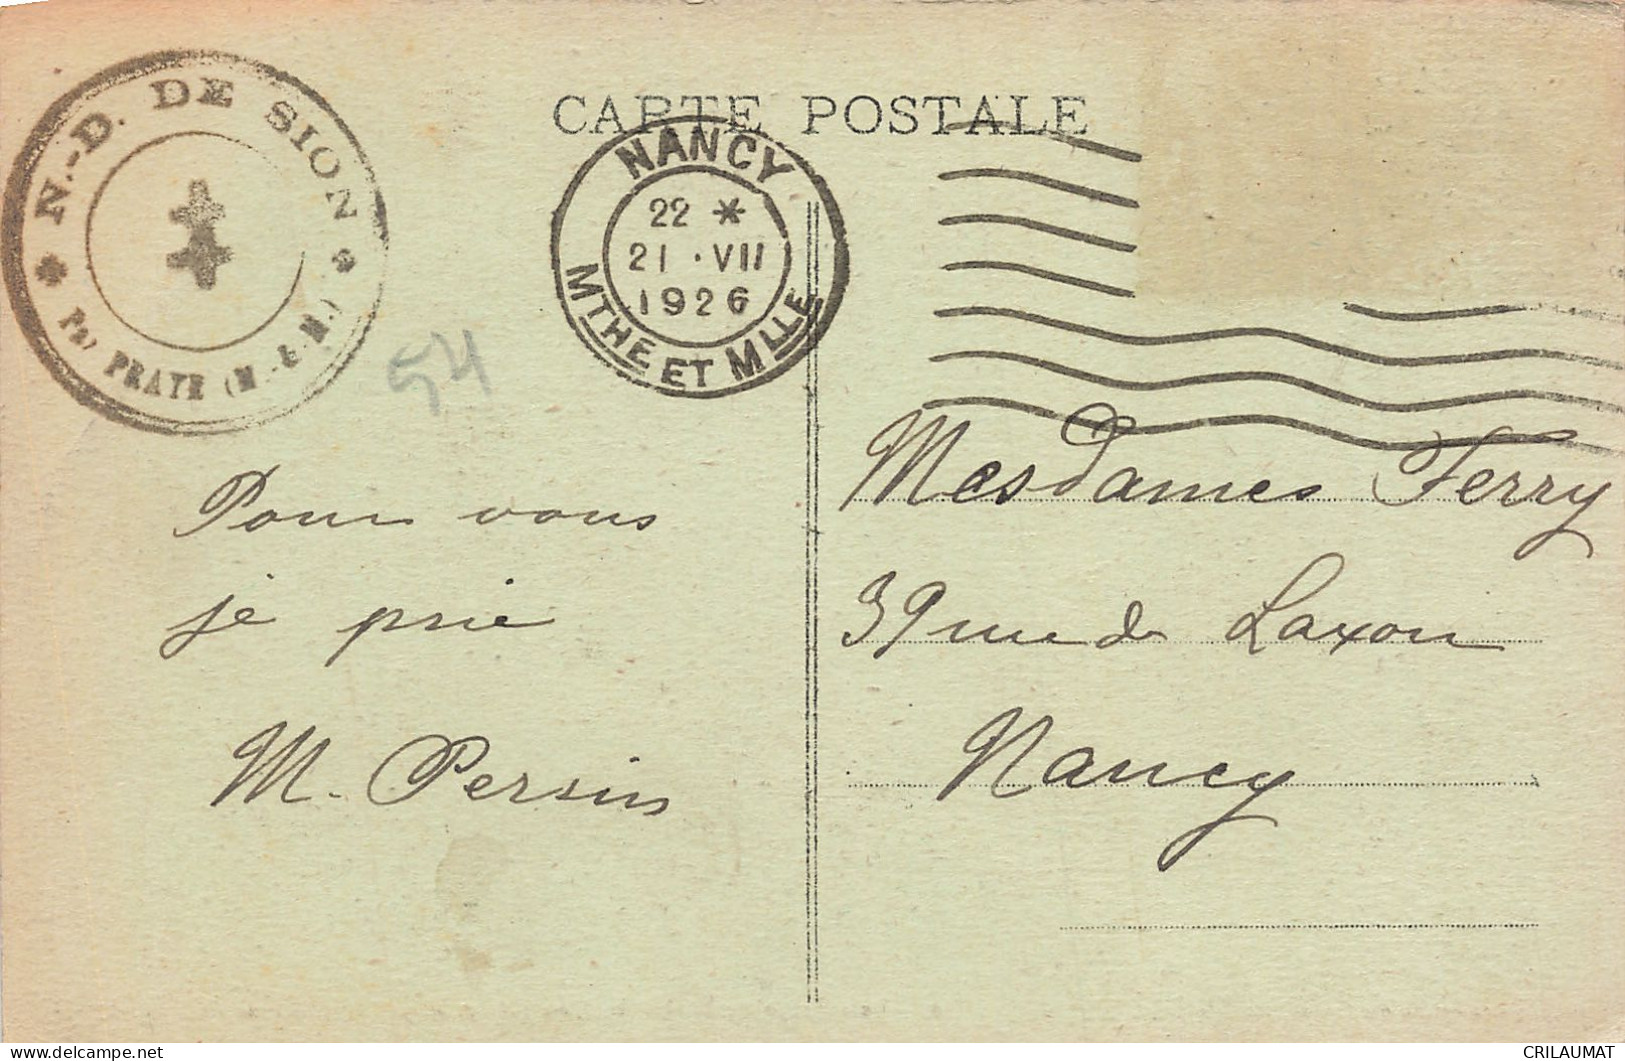 CARTE POSTALE
N.-D. DE SION
Par PRAYE (M.-&-M.)
NANCY
22 *
21 · VII
1926
MTHE ET MLLE
54
Pour vous
je prie
M. Persin
Mesdames Ferry
39 rue de Laxou
Nancy
delcampe.net
CRILAUMAT